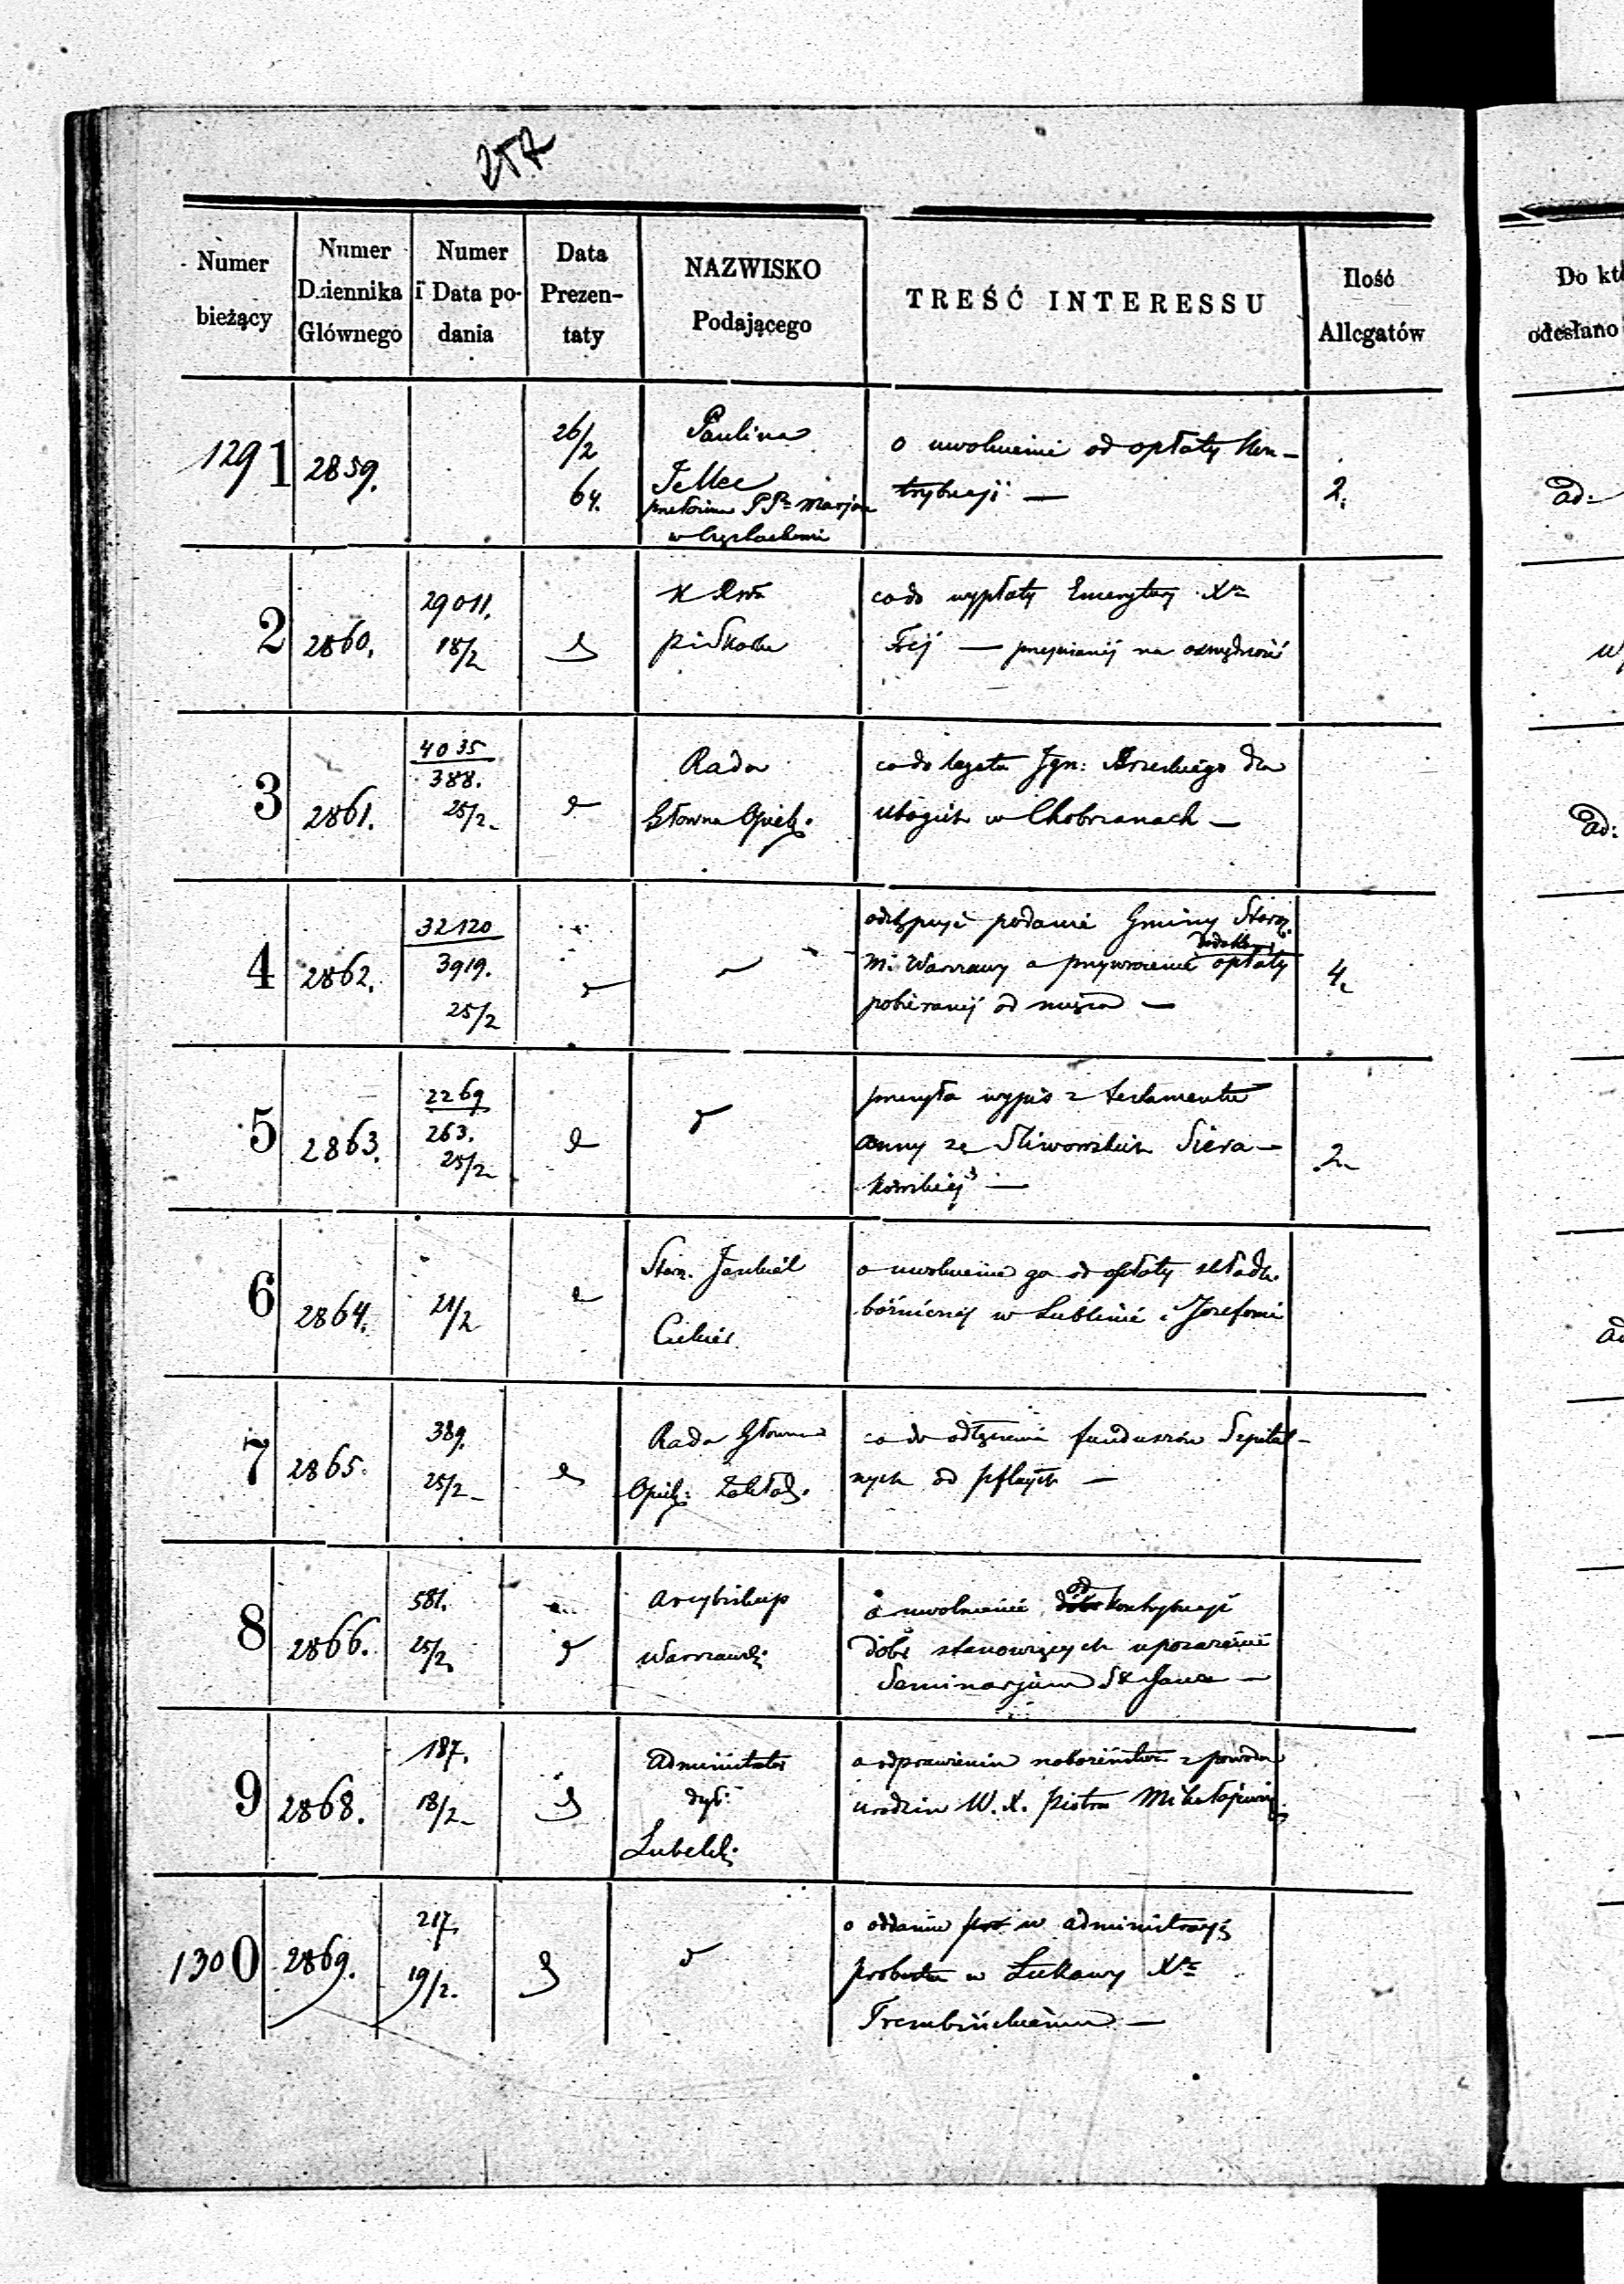 257
Numer bieżący
Numer Dziennika Głównego
Numer i Data podania
Data Prezentaty
NAZWISKO Podającego
TREŚĆ INTERESSU
Ilość Allegatów
Do kt
odesłano
1291 2859. 26/2 64. Paulina
o uwolnienie od opłaty kon-
trybucji — 2. ad:
2 2860. 29011. 18/2
co do wypłaty Emerytury Xa
3 2861. 4035 388. 25/2 Rada
Główna Opiek.
co do legatu Ign: dla
ubogich w Chobrzanach — ad:
4 2862. 32120 3919. 25/2
podanie Gminy Staroz.
M. Warszawy o przywrócenie opłaty
pobieranej od mięsa — 4.
5 2863. 2269 263. 25/2
przesyła wypis z testamentu
Anny ze Śliwowskich Siera-
kowskiej — 2
6 2864. 21/2 Staroz. Jankiel
Cukier
o uwolnienie go od opłaty składki
bóżniczej w Lublinie i Józefowie
7 2865. 389. 25/2 Rada Główna
Opiek: Zakład.
co do odłączenia funduszów Szpital-
nych od
8 2866. 581. 25/2 Arcybiskup
Warszawski
o uwolnienie od kontrybucji
dóbr stanowiących uposażenie
Seminarjum St Jana —
9 2868. 187. 18/2 Administrator
dyć:
Lubelski
o odprawieniu nabożeństwa z powodu
urodzin W. X. Piotra Mikołajewicz
1300 2869. 217. 19/2
o oddanie w administracyę
probostwa w Łukawy Xa